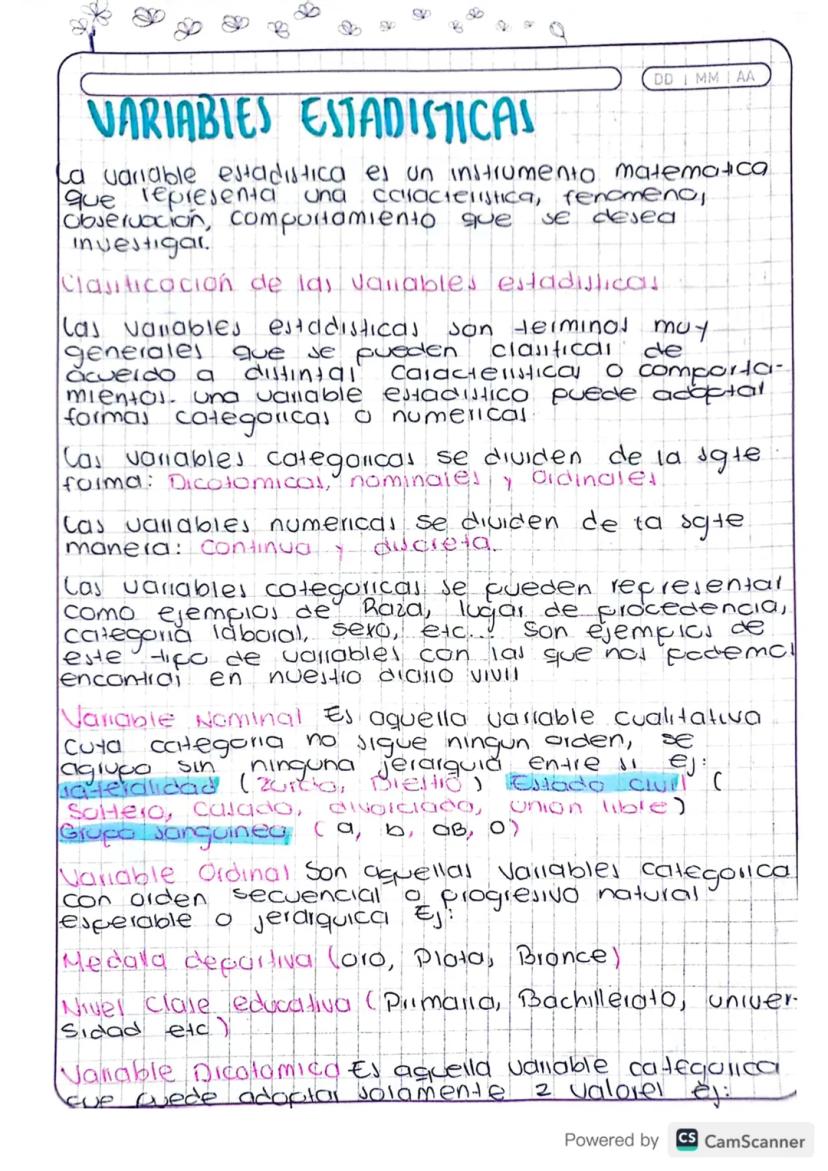 DD | MM | AA
VARIABLES ESTADISTICAS
La variable estadistica es un instrumento matematica
que representa una caracteristica, fenomeno,
observación, comportamiento que se desea
investigar.
Clasificación de las variables estadisticas
Las variables estadisticas son terminos muy
generales que se pueden clasificar de
acuerdo a distintas caracteristicas o comporta-
mientos. una variable estadistico puede adoptar
formas categoricas o numericas.
Las variables categoricas se dividen de la sgte
forma: Dicotomicas, nominales y Ordinales
Las variables numericas se dividen de la sgte
manera: continua y discreta.
Las variables categoricas se pueden representar
como ejemplos de Raza, lugar de procedencia,
categoria laboral, sexo, etc.. Son ejemplos de
este tipo de variables con las que nos podemos
encontrar en nuestro diario vivir
Variable Nominal Es aquella variable cualitativa
cuya categoria no sigue ningun orden, se
agrupa sin ninguna jerarquia entre si ej:
lateralidad (zurdo, Diestro) Estado civil (
Soltero, casado, divorciado, union libre)
Grupo sanguineo (a, b, aB, O)
Variable Ordinal Son aquellas variables categorica
con orden secuencial o progresivo natural
esperable o jerarquica Ej:
Medalla deportiva (oro, Plata, Bronce)
Nivel Clase educativa (Primaria, Bachillerato, univer-
sidad etc)
Variable Dicotomica Es aquella variable categorica
que puede adoptar solamente 2 valores ej:
Powered by CS CamScanner